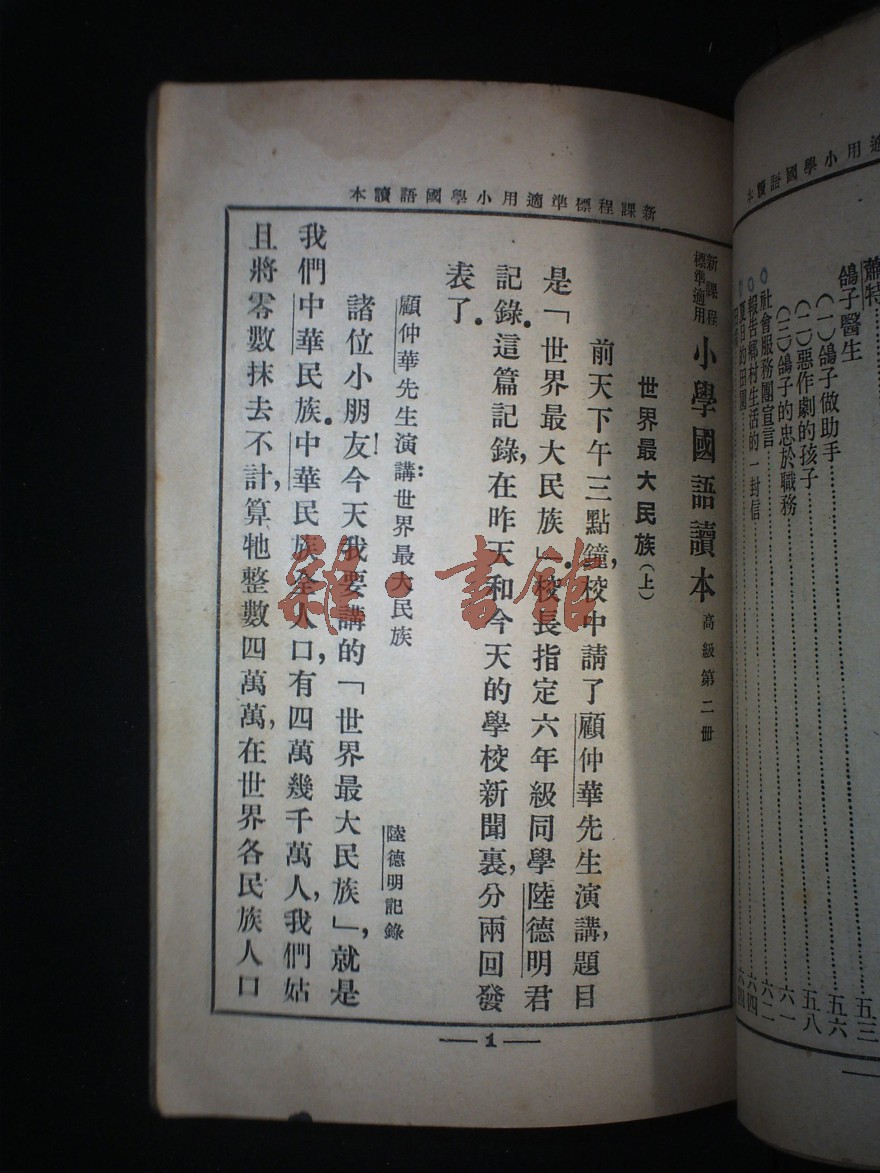 適用小學國語讀本
蕭特
鴿子醫生
(一)鴿子做助手
(二)惡作劇的孩子
(三)鴿子的忠於職務
社會服務團宣言
報告鄉村生活的一封信
夏日的田園
五三
五六
五八
六一
六二
六四
新課程標準適用小學國語讀本
新課程標準適用 小學國語讀本 高級第二冊
世界最大民族(上)
前天下午三點鐘,校中請了顧仲華先生演講,題目
是「世界最大民族」。校長指定六年級同學陸德明君
記錄。這篇記錄,在昨天和今天的學校新聞裏,分兩回發
表了。
顧仲華先生演講:世界最大民族
陸德明記錄
諸位小朋友!今天我要講的「世界最大民族」,就是
我們中華民族。中華民族全人口,有四萬萬幾千萬人,我們姑
且將零數抹去不計,算牠整數四萬萬,在世界各民族人口
1
雜·書館